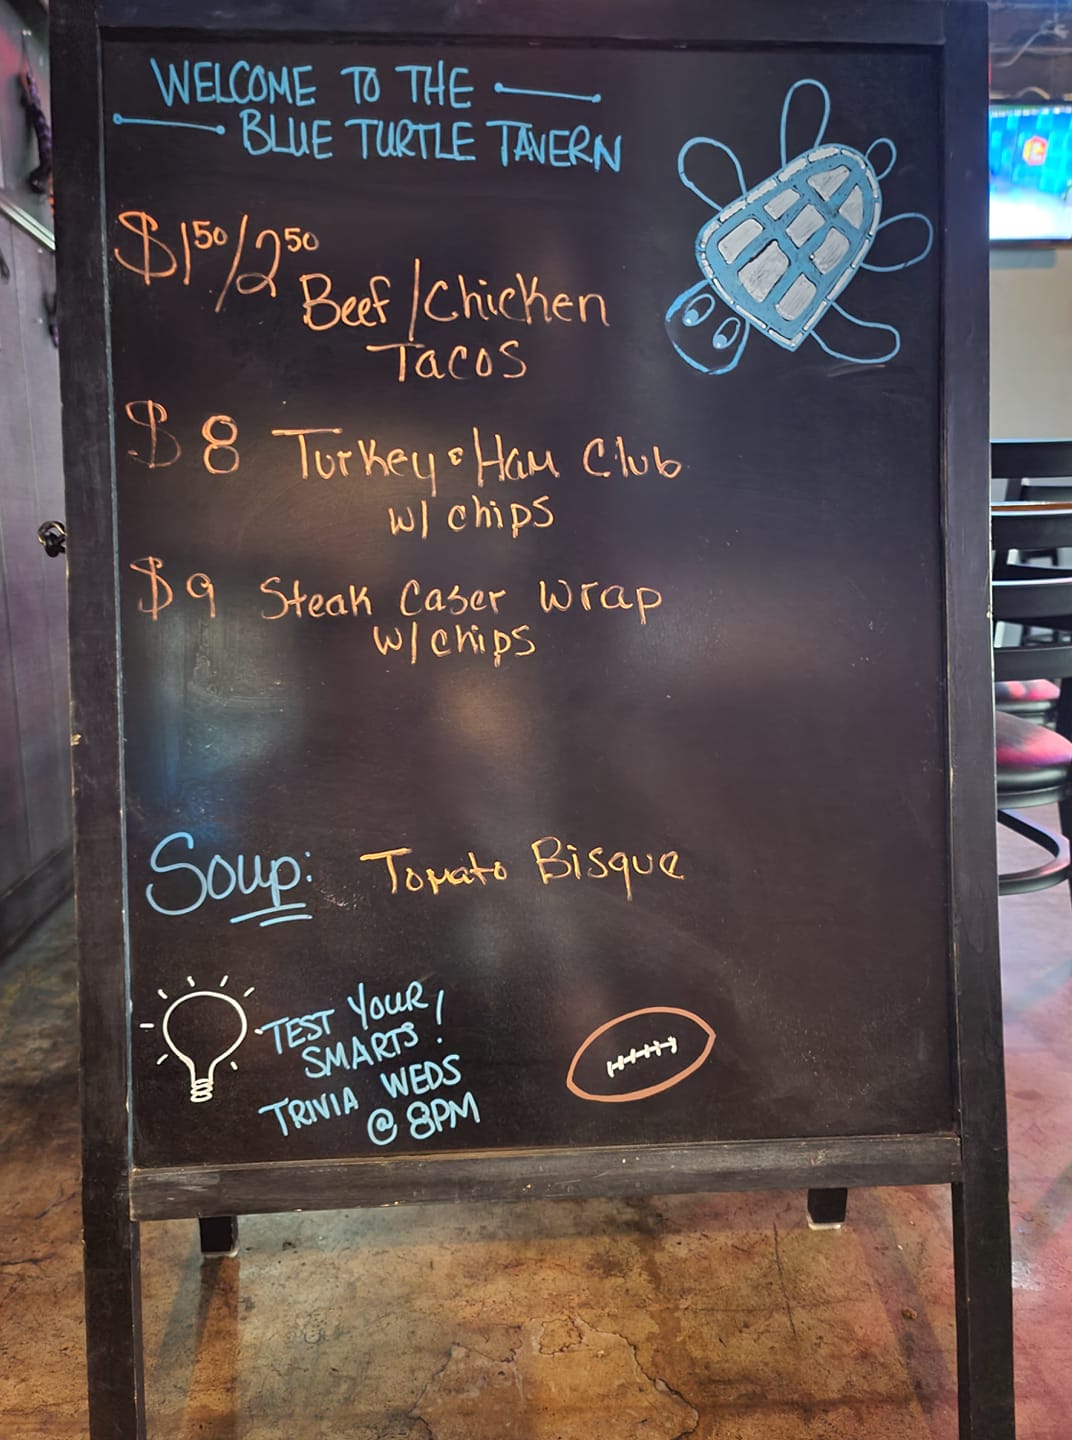 WELCOME TO THE
BLUE TURTLE TAVERN
$1.50/2.50
Beef/Chicken
Tacos
$8 Turkey & Ham Club
w/ chips
$9 Steak Caser Wrap
w/ chips
Soup: Tomato Bisque
TEST YOUR
SMARTS!
TRIVIA WEDS
@ 8PM